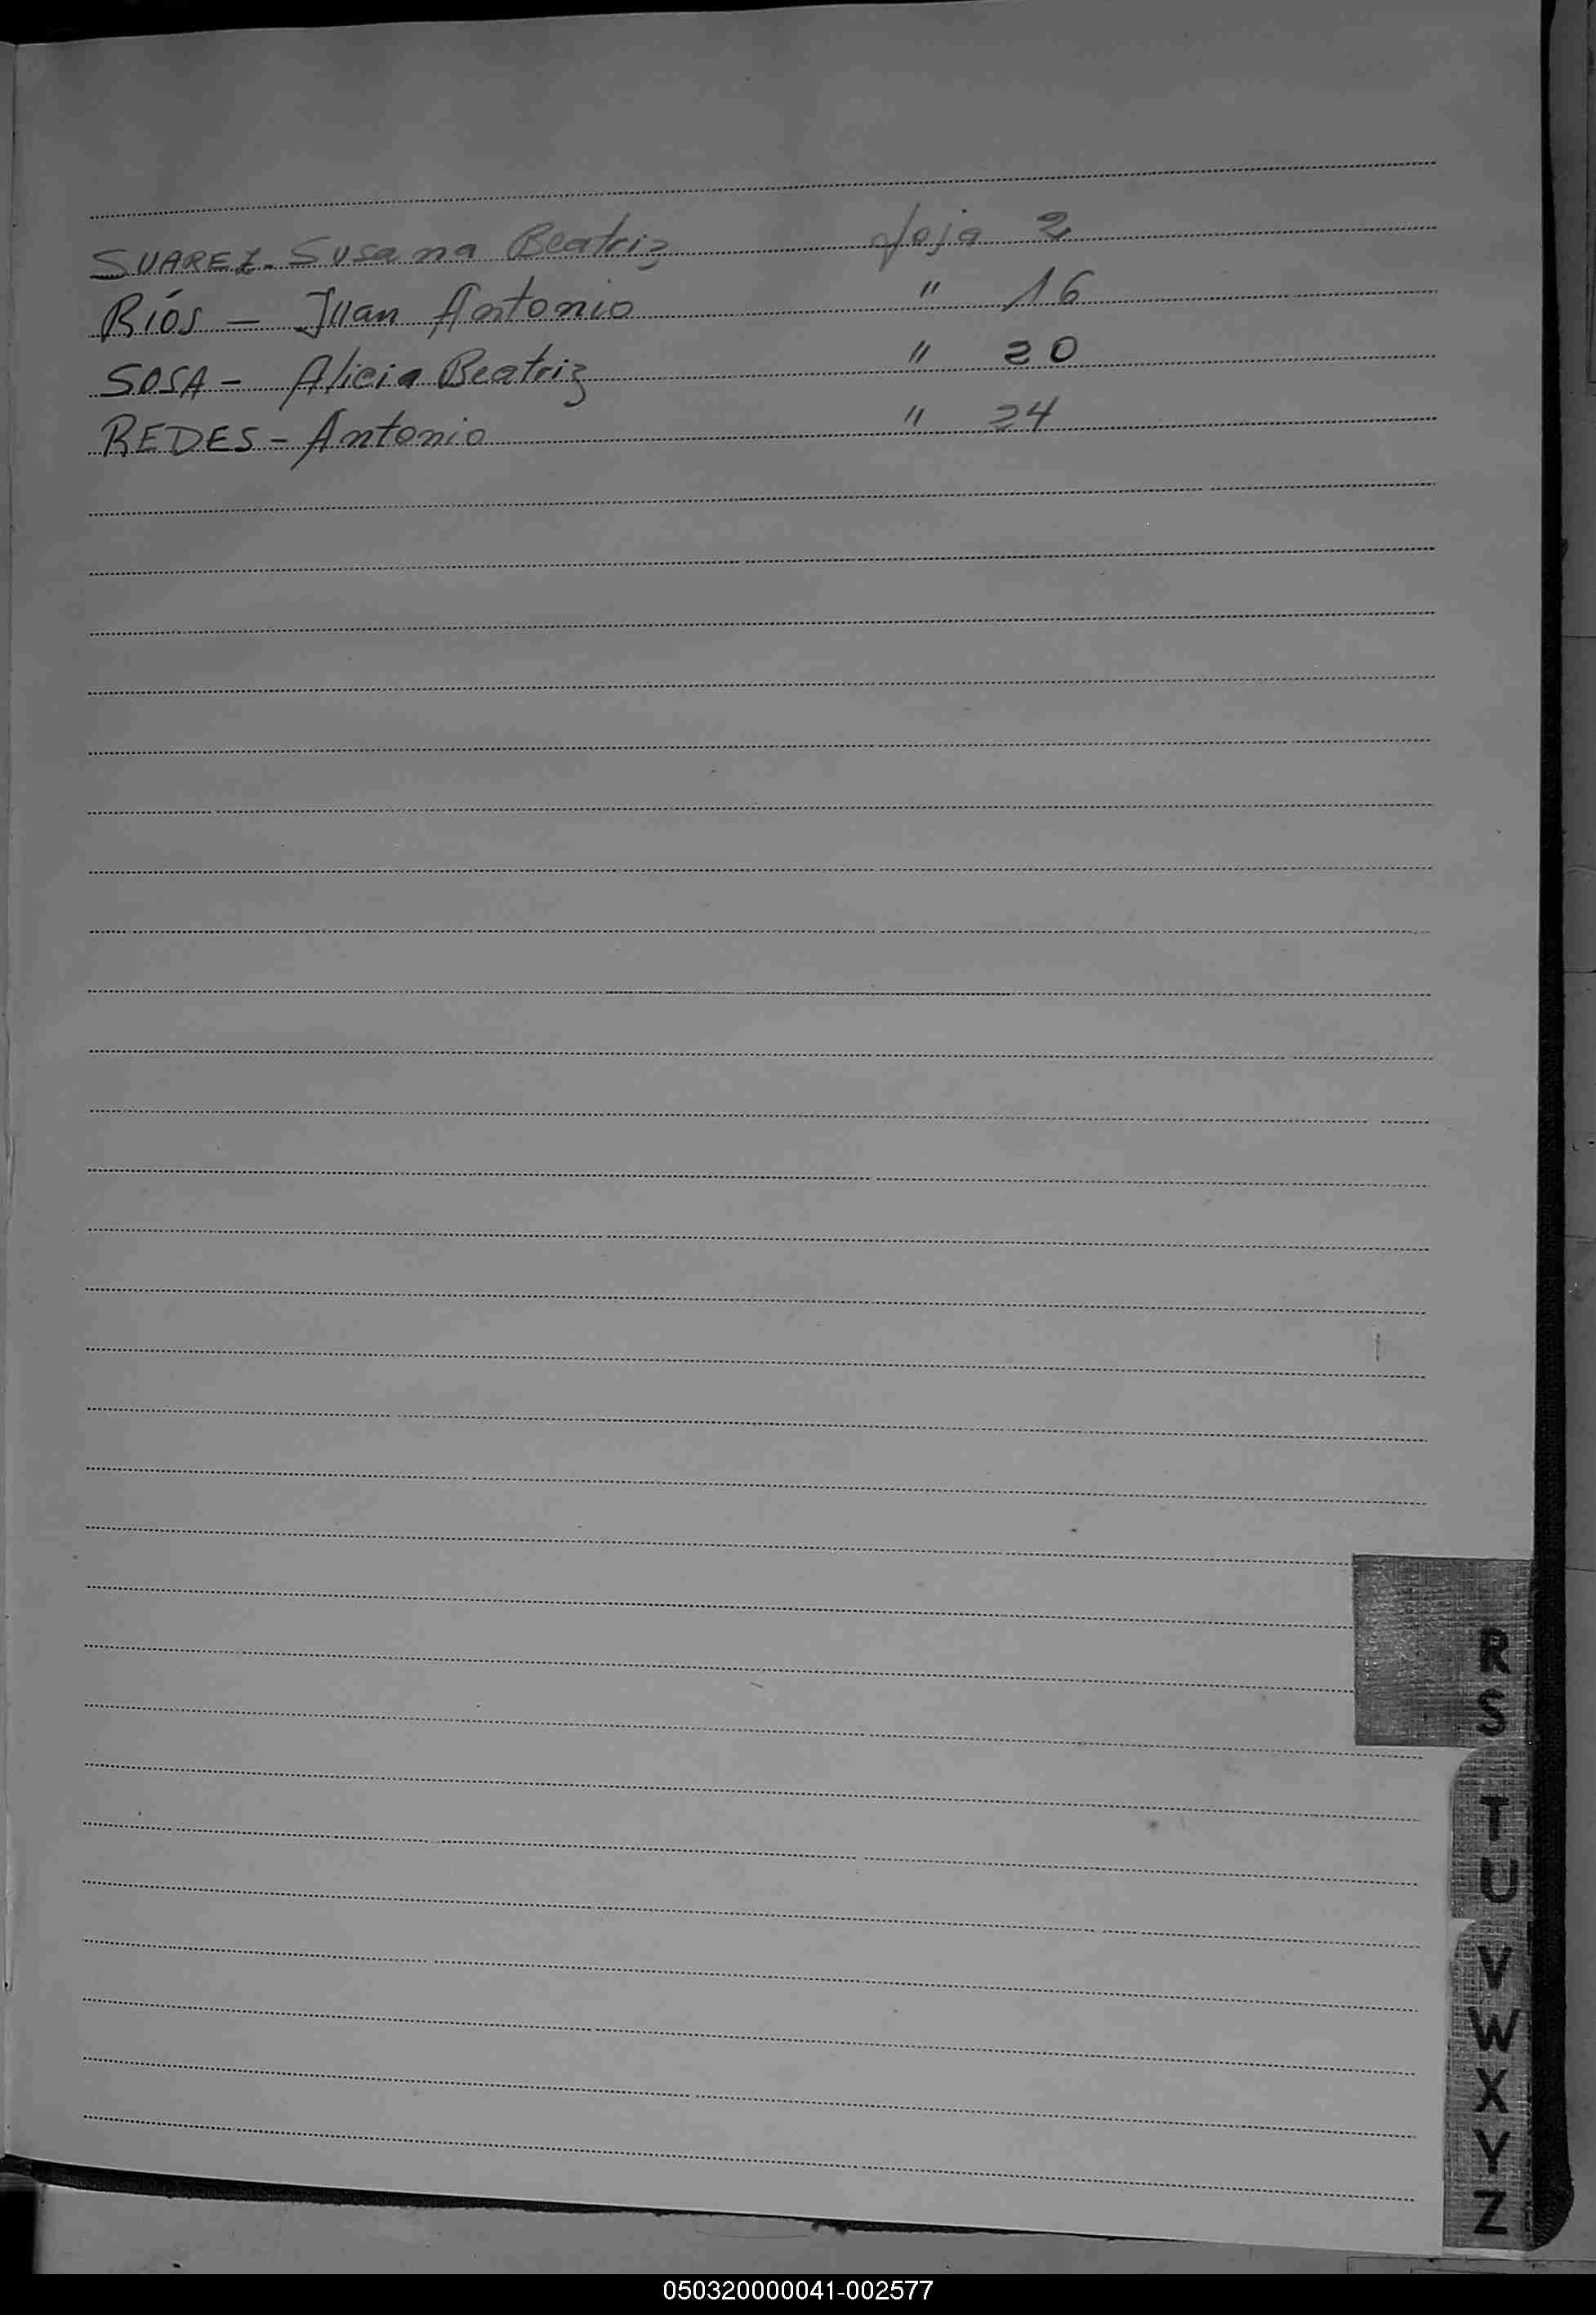 SUAREZ - Susana Beatriz foja 2
Ríos - Juan Antonio " 16
SOSA - Alicia Beatriz " 20
REDES - Antonio " 24
R
S
T
U
V
W
X
Y
Z
050320000041-002577